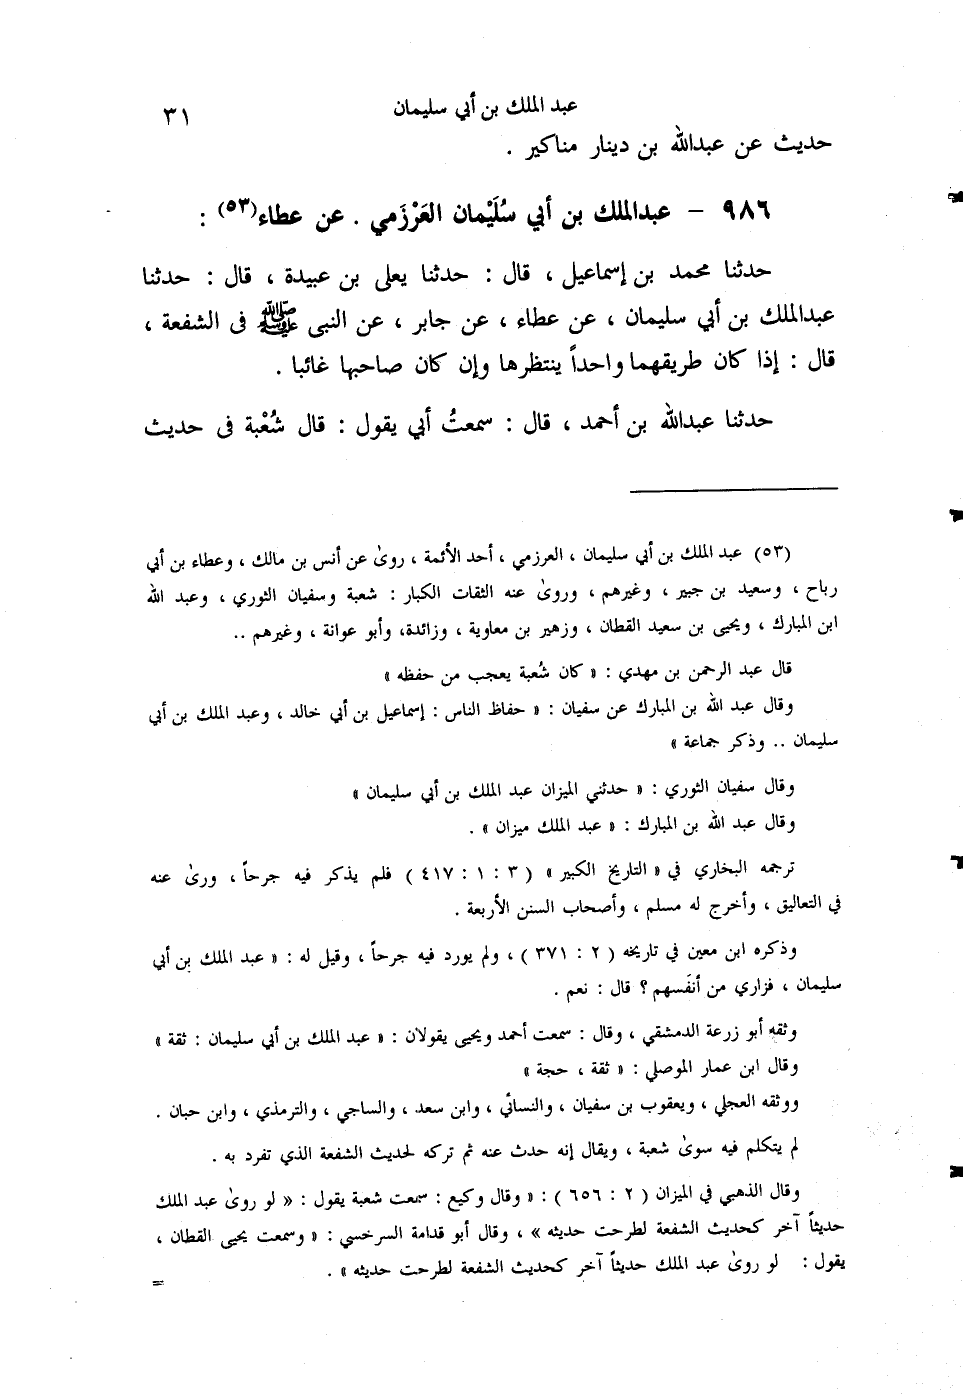 عبد الملك بن أبي سليمان ٣١
حديث عن عبدالله بن دينار مناكير .
٩٨٦ – عبدالملك بن أبي سُلَيْمان العَرْزَمي . عن عطاء(٥٣) :
حدثنا محمد بن إسماعيل ، قال : حدثنا يعلى بن عبيدة ، قال : حدثنا
عبدالملك بن أبي سليمان ، عن عطاء ، عن جابر ، عن النبى ﷺ فى الشفعة ،
قال : إذا كان طريقهما واحداً ينتظرها وإن كان صاحبها غائبا .
حدثنا عبدالله بن أحمد ، قال : سمعتُ أبي يقول : قال شُعْبة فى حديث
(٥٣) عبد الملك بن أبي سليمان ، العرزمي ، أحد الأئمة ، روىٰ عن أنس بن مالك ، وعطاء بن أبي
رباح ، وسعيد بن جبير ، وغيرهم ، وروىٰ عنه الثقات الكبار : شعبة وسفيان الثوري ، وعبد الله
ابن المبارك ، ويحيى بن سعيد القطان ، وزهير بن معاوية ، وزائدة، وأبو عوانة ، وغيرهم ..
قال عبد الرحمن بن مهدي : « كان شُعبة يعجب من حفظه »
وقال عبد الله بن المبارك عن سفيان : « حفاظ الناس : إسماعيل بن أبي خالد ، وعبد الملك بن أبي
سليمان .. وذكر جماعة »
وقال سفيان الثوري : « حدثني الميزان عبد الملك بن أبي سليمان »
وقال عبد الله بن المبارك : « عبد الملك ميزان » .
ترجمه البخاري في « التاريخ الكبير » ( ٣ : ١ : ٤١٧ ) فلم يذكر فيه جرحاً ، ورىٰ عنه
في التعاليق ، وأخرج له مسلم ، وأصحاب السنن الأربعة .
وذكره ابن معين في تاريخه ( ٢ : ٣٧١ ) ، ولم يورد فيه جرحاً ، وقيل له : « عبد الملك بن أبي
سليمان ، فزاري من أنفَسهم ؟ قال : نعم .
وثقه أبو زرعة الدمشقي ، وقال : سمعت أحمد ويحيى يقولان : « عبد الملك بن أبي سليمان : ثقة »
وقال ابن عمار الموصلي : « ثقة ، حجة »
ووثقه العجلي ، ويعقوب بن سفيان ، والنسائي ، وابن سعد ، والساجي ، والترمذي ، وابن حبان .
لم يتكلم فيه سوىٰ شعبة ، ويقال إنه حدث عنه ثم تركه لحديث الشفعة الذي تفرد به .
وقال الذهبي في الميزان ( ٢ : ٦٥٦ ) : « وقال وكيع : سمعت شعبة يقول : « لو روىٰ عبد الملك
حديثاً آخر كحديث الشفعة لطرحت حديثه » ، وقال أبو قدامة السرخسي : « وسمعت يحيى القطان ،
يقول : لو روىٰ عبد الملك حديثاً آخر كحديث الشفعة لطرحت حديثه » .
=